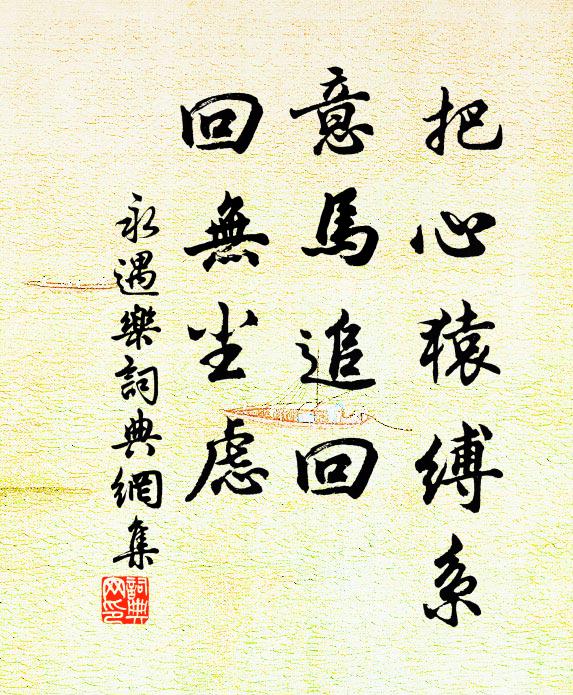 把心猿缚系
意馬追回
回無尘虑
永遇樂詞典網集
詞典
网印